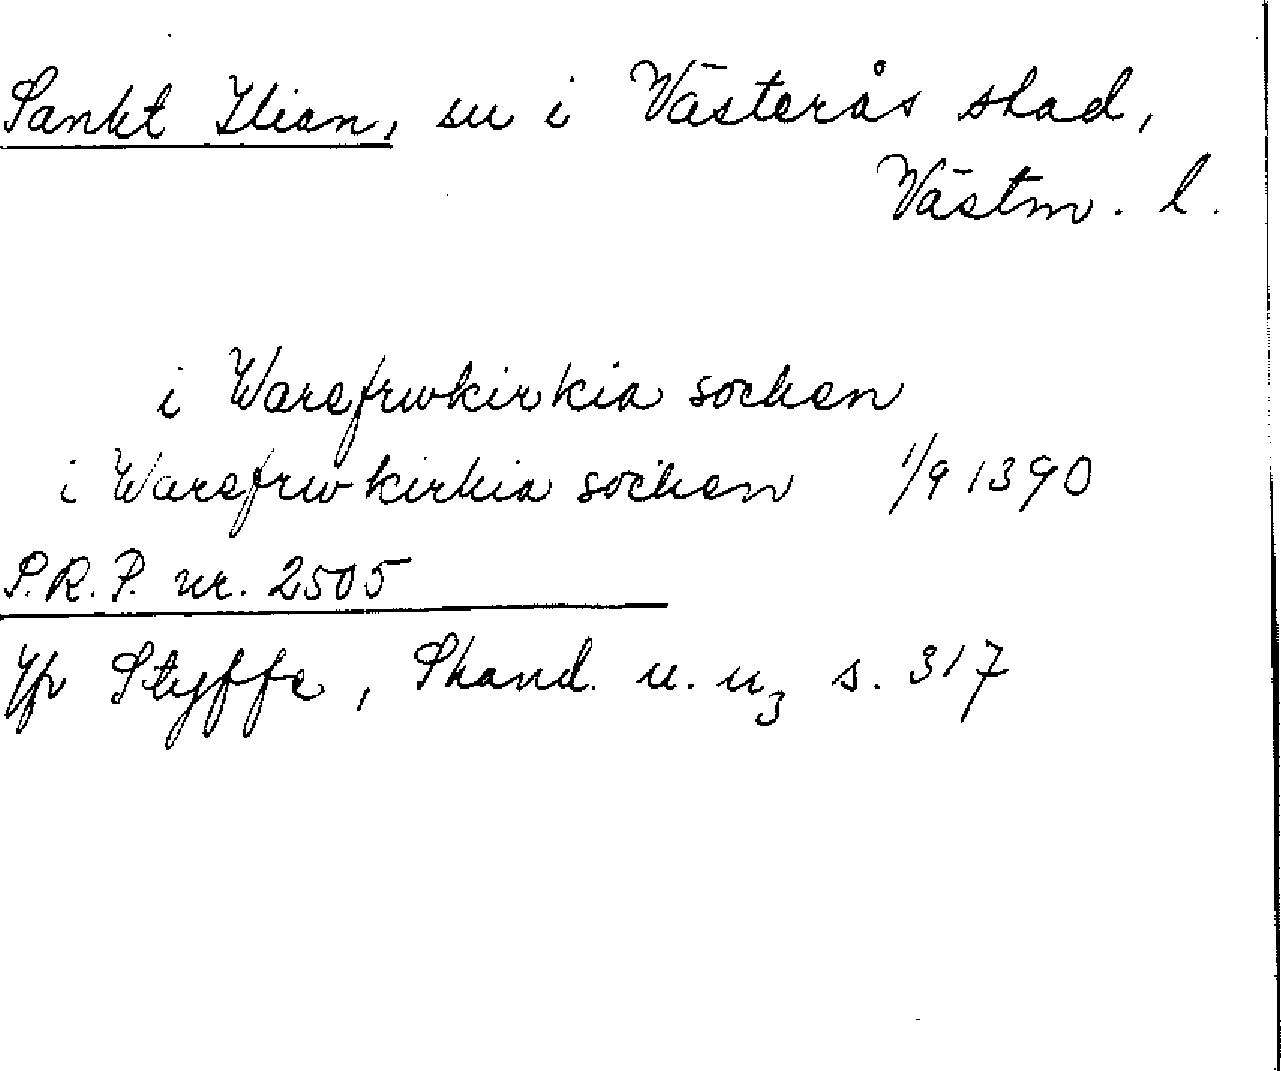 Sankt Ilian, sn i Västerås stad,
Västm. l.
i Warefrwkirkia socken
i Warefrwkirkia socken 1/9 1390
S.R.P. nr. 2505
Jfr Styffe, Skand. u. u3 s. 317